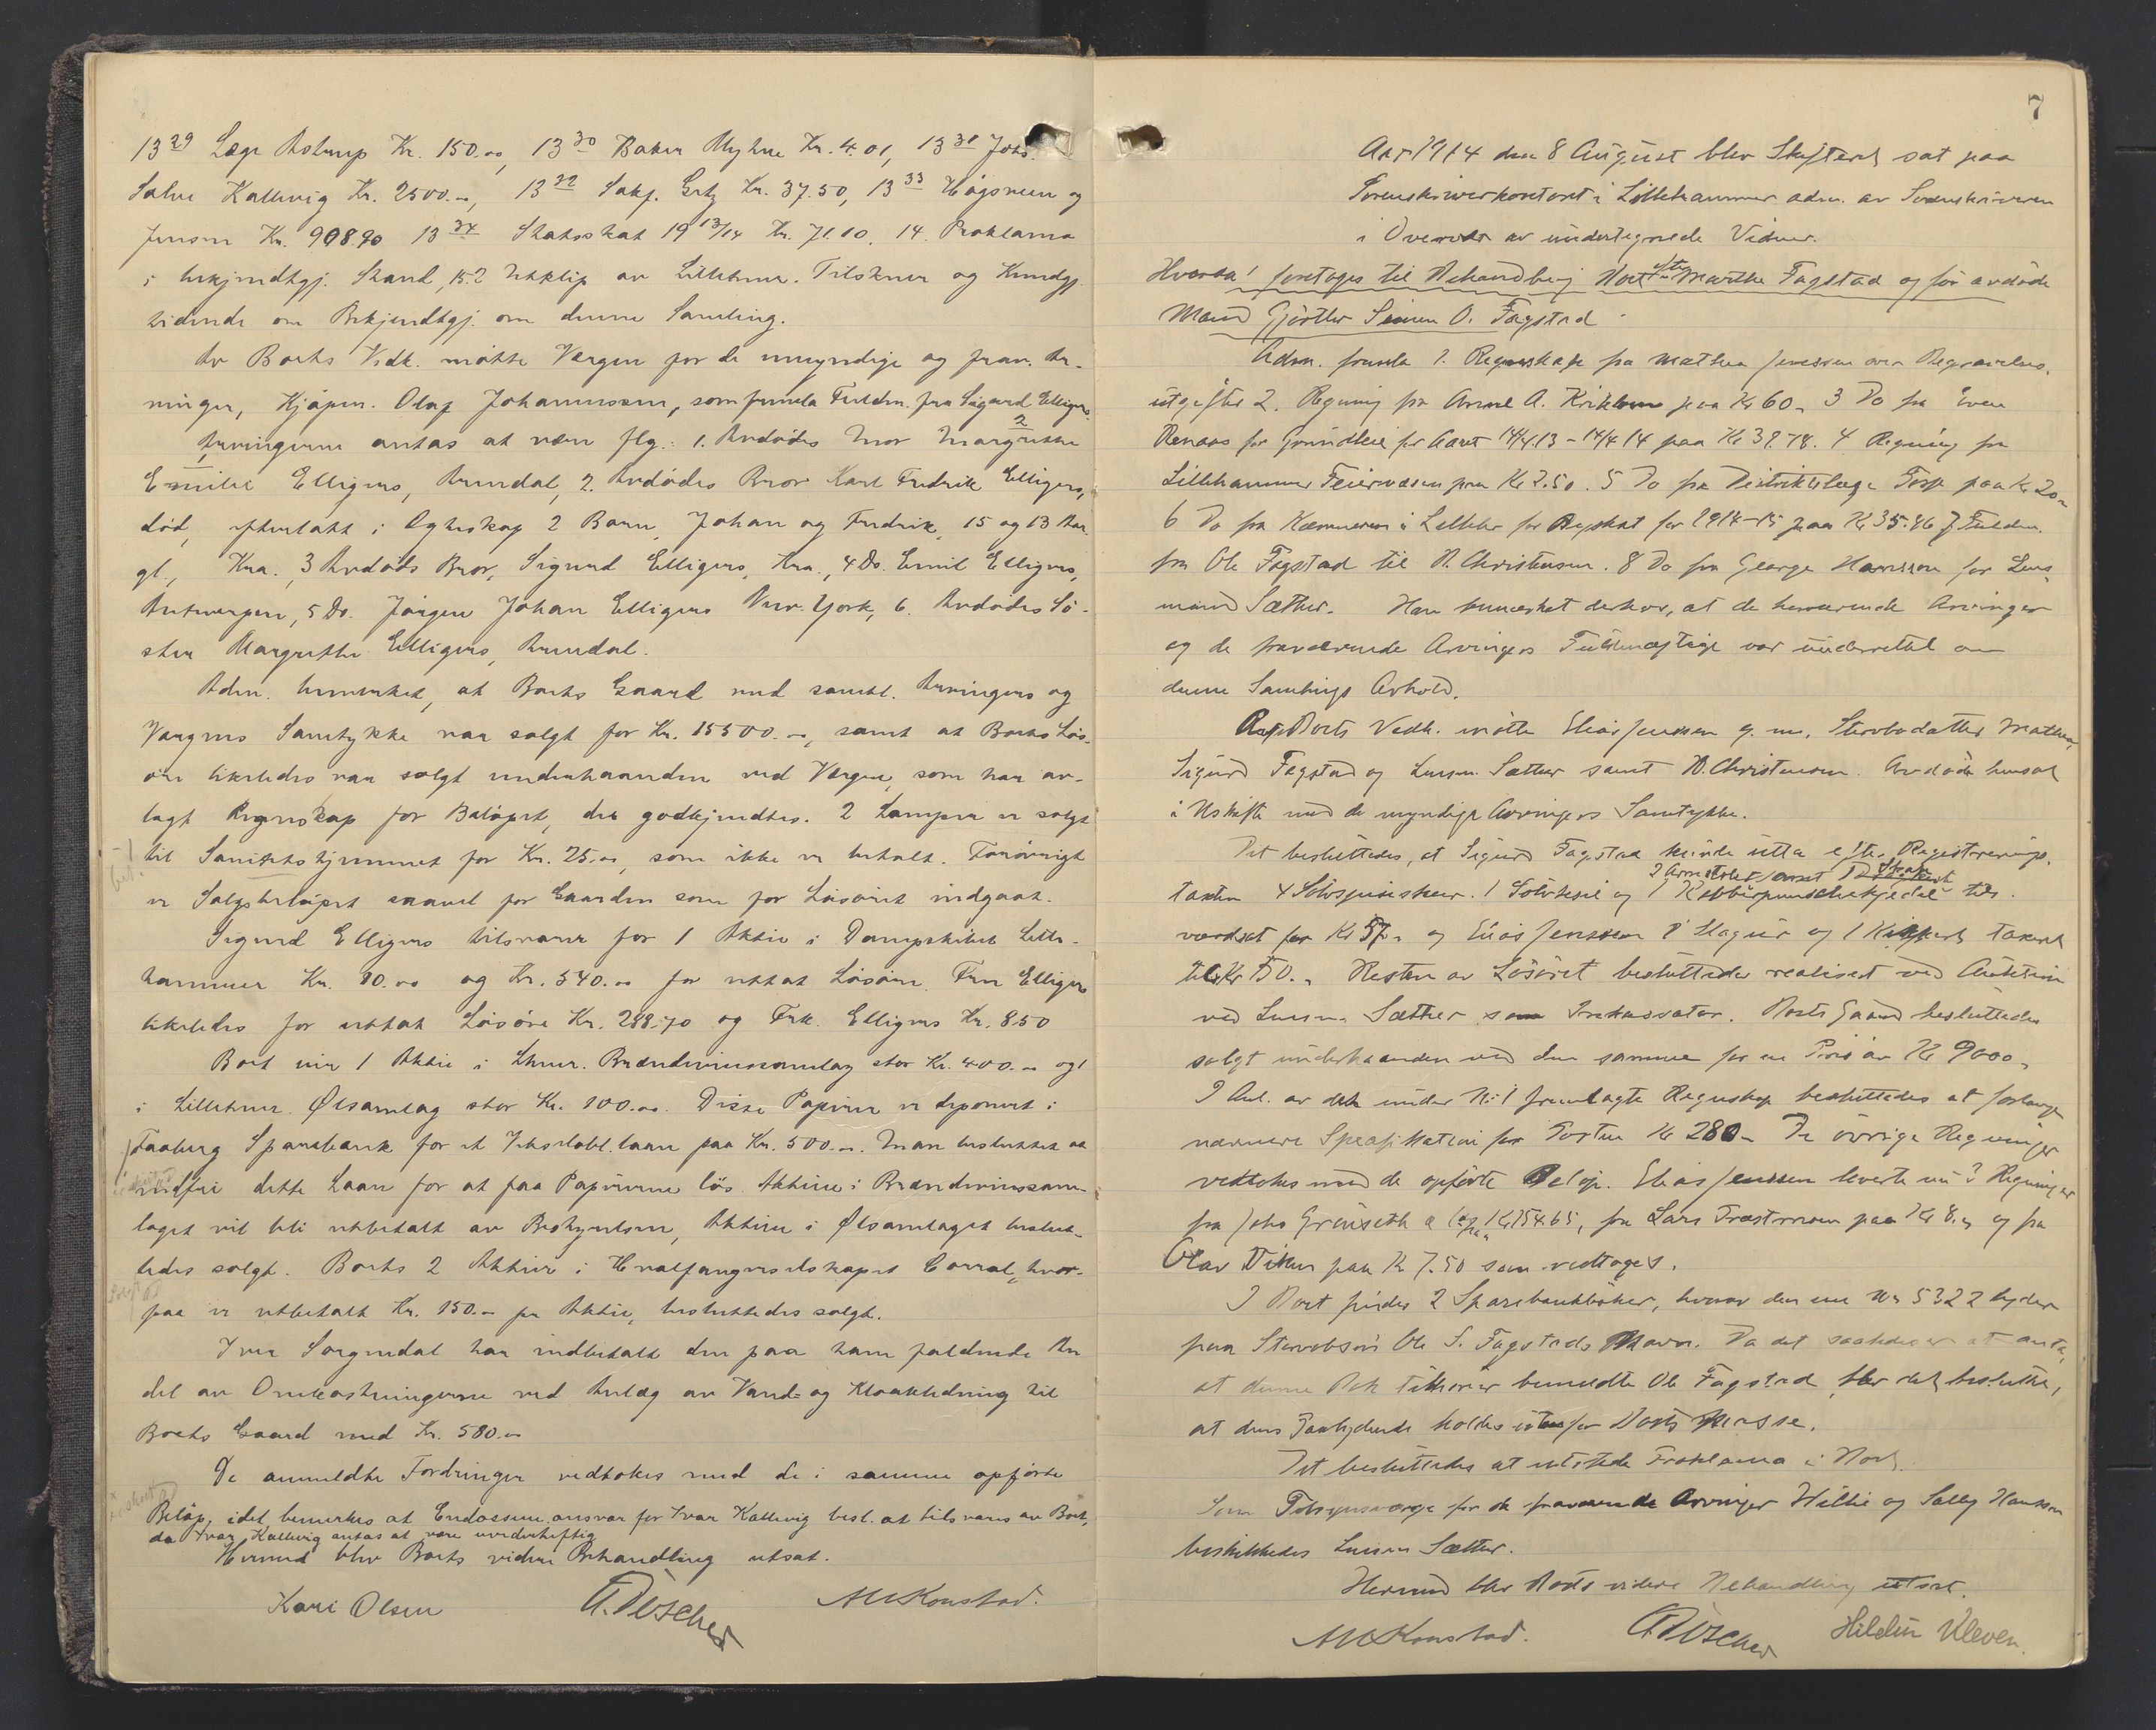 13 29 Læge Astrup Kr. 150.00, 13 30 Baker Myhre Kr. 4.01, 13 31 Johs.
Salve Kallevig Kr. 2500.00, 13 32 Sakf. Kr. 37.50, 13 33 og
Jensen Kr. 908.90 13 34 Statsskat 19 13/14 Kr. 71.10. 14. Proklama
i bekjendtgj. Stand, 15. 2 Utklip av Lillehmr. Tilskuer og Kundgj.
tidende om Bekjendtgj. om denne Samling.
Av Boets Vedk. møtte Vergen for de umyndige og frav. Ar-
vinger, Kjøpm. Olaf Johannessen, som fremla Fuldm. fra Sigurd Elligers.
2
Arvingerne antas at være flg.: 1. Avdødes Mor Margrethe
Emilie Elligers, Arendal, 2. Avdødes Bror Karl Fredrik Elligers,
død, efterlatt i Egteskap 2 Barn, Johan og Fredrik, 15 og 13 Aar
gl., Kra., 3 Avdødes Bror, Sigurd Elligers, Kra., 4 Do. Emil Elligers,
Antwerpen, 5 Do. Jørgen Johan Elligers New York, 6. Avdødes Sø-
ster Margrethe Elligers, Arendal.
Adm. bemerket, at Boets Gaard med samtl. Arvingers og
Vergens Samtykke var solgt for Kr. 15500.00, samt at Boets Løs-
øre likeledes var solgt underhaanden ved Vergen, som har av-
lagt Regnskap for Beløpet, der godkjendtes. 2 Lamper er solgt
til for Kr. 25.00, som ikke er betalt. Forøvrigt
er Salgsbeløpet saavel for Gaarden som for Løsøret indgaat.
Sigurd Elligers tilsvarer for 1 Aktie i Dampskibet Lille-
hammer Kr. 10.00 og Kr. 540.00 for uttat Løsøre. Fru Elligers
likeledes for uttat Løsøre Kr. 288.70 og Frk. Elligers Kr. 8.50
Boet eier 1 Aktie i Lhmr. Brændevinssamlag stor Kr. 400.00 og 1
i Lillehmr. Ølsamlag stor Kr. 100.00. Disse Papirer er deponert i
Faaberg Sparebank for et laan paa Kr. 500.00. Man besluttet at
indfri dette Laan for at faa Papirerne løs. Aktien i Brændevinssam-
laget vil bli utbetalt av Bestyrelsen, Aktien i Ølsamlaget beslut-
tedes solgt. Boets 2 Aktier i Hvalfangerselskapet Corral, hvor-
paa er utbetalt Kr. 150.00 pr Aktie, besluttedes solgt.
Iver Sorgendal har indbetalt den paa ham faldende An
del av Omkostningerne ved Anlæg av Vand- og Kloakledning til
Boets Gaard med Kr. 580.00
De anmeldte Fordringer vedtokes med de i samme opførte
Beløp, idet bemerkes at Endossementansvar for Ivar Kallevig besl. at tilsvares av Boet,
da Ivar Kallevig antas at være uvederheftig
Hermed blev Boets videre Behandling utsat.
Kari Olsen A. Discher M Konstad.
7
Aar 1914 den 8 August blev Skifteret sat paa
Sorenskriverkontoret i Lillehammer adm. av Sorenskriveren
i Overvær av undertegnede Vidner.
Hvorda! foretoges til Behandling Boet efter Marthe Fagstad og før avdøde
Mand Gjørtler Simen O. Fagstad
Adm. fremla 1. Regnskap fra Mathea Jenssen over Begravelses-
utgifter 2. Regning fra Anne A. paa Kr 60.- 3 Do fra Even
Renaas for Grundleie for Aaret 14/4 13 - 14/4 14 paa Kr 39.78. 4 Regning fra
Lillehammer Feiervæsen paa Kr 2.50. 5 Do fra Distriktslæge Torp paa Kr 20.-
6 Do fra Kæmneren i Lillehr for Byskat for 1914-15 paa Kr 35.86 7 Fuldm.
fra Ole Fagstad til B. Christensen. 8 Do fra George Hansson for Lens-
mand Sæther. Han bemerket derhos, at de herværende Arvinger
og de fraværende Arvingers Fuldmægtige var underrettet om
denne Samlings Avhold.
Boets Vedk. møtte Elias Jenssen g. m. Stervbodatter Mathea,
Sigurd Fagstad og Lensm. Sæther samt B. Christensen. Avdøde hensat
i Uskifte med de myndige Arvingers Samtykke.
Det besluttedes, at Sigurd Fagstad kunde utta efter Registrerings-
taxten 4 Sølvspiseskeer. 1 Sølvteske og 1 tils.
værdsat for Kr 57.- og Elias Jenssen 1 Slagur og 1 Kikkert taxert
tils Kr 50.- Resten av Løsøret besluttedes realisert ved Auktion
ved Lensm. Sæther som Inkassator. Boets Gaard besluttedes
solgt underhaanden ved den samme for en Pris av Kr 9000.-
I Anl. av det under No 1 fremlagte Regnskap besluttedes at forlange
nærmere Spesifikation for Posten Kr 280.- De øvrige Regninger
vedtokes med de opførte Beløp. Elias Jenssen leverte nu 3 Regninger
fra Johs Grønseth & Co paa Kr 154.65, fra Lars paa Kr 8.- og fra
Olav paa Kr 7.50 som vedtoges.
I Boet findes 2 Sparebankbøker, hvorav den ene No 5322 lyder
paa Stervbosøn Ole S. Fagstads Navn. Da det saaledes er at anta,
at denne Bok tilhører bemeldte Ole Fagstad, blev det besluttet,
at dens Paalydende holdes utenfor Boets Masse.
Det besluttedes at utstede Proklama i Boet.
Som Tilsynsværge for de fraværende Arvinger Hillie og Sally Hansson
beskikkedes Lensm Sæther.
Hermed blev Boets videre Behandling utsat.
M Konstad. A Discher Hildur Kleven